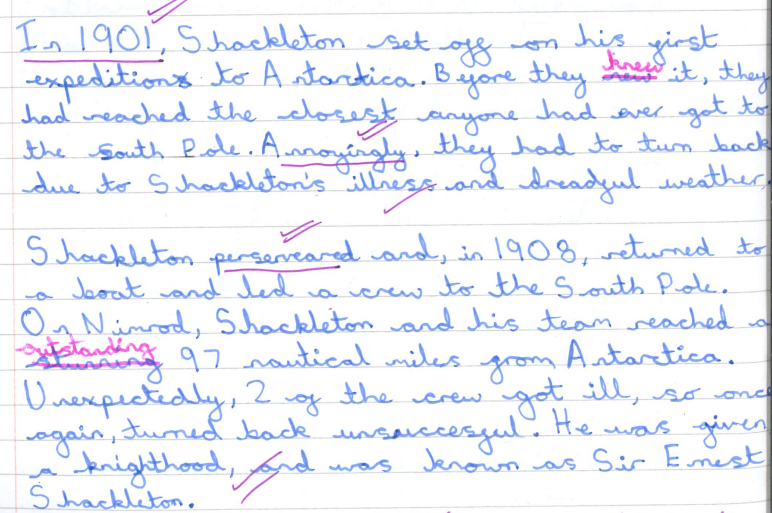 In 1901, Shackleton set off on his first
expedition to Antarctica. Before they knew it, they
had reached the closest anyone had ever got to
the South Pole. Annoyingly, they had to turn back
due to Shackleton's illness and dreadful weather.
Shackleton perserveared and, in 1908, returned to
a boat and led a crew to the South Pole.
On Nimrod, Shackleton and his team reached a
outstanding 97 nautical miles from Antarctica.
Unexpectedly, 2 of the crew got ill, so once
again, turned back unsuccesful. He was given
a knighthood, and was known as Sir Ernest
Shackleton.